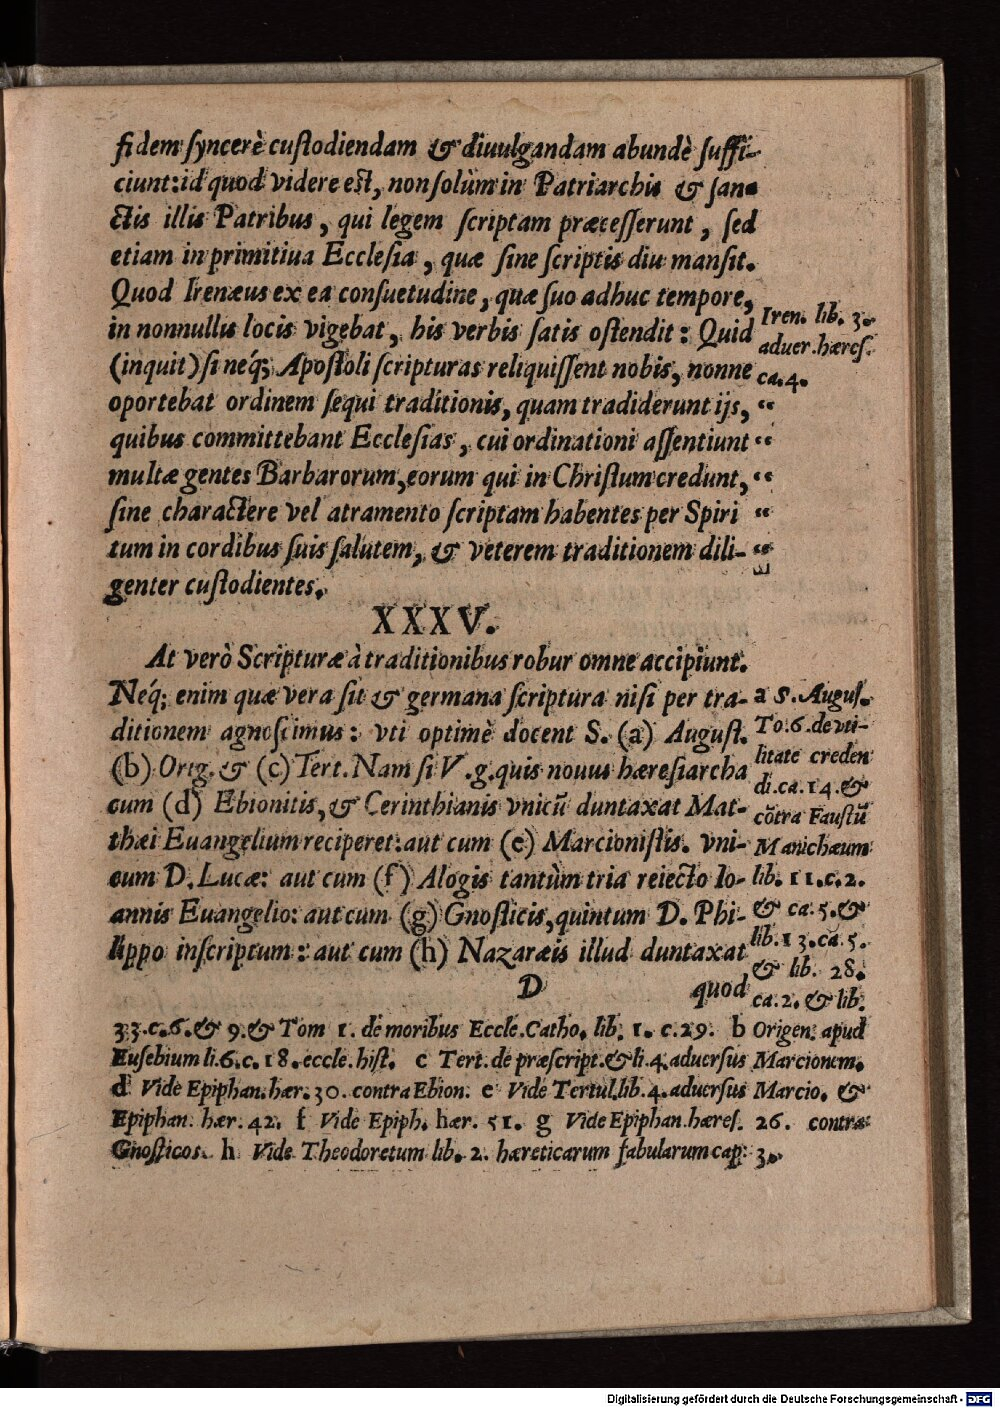 fidem syncerè custodiendam & diuulgandam abundè suffi-
ciunt: id quod videre est, non solùm in Patriarchis & san-
ctis illis Patribus, qui legem scriptam præcesserunt, sed
etiam in primitiua Ecclesia, quæ sine scriptis diu mansit.
Quod Irenæus ex ea consuetudine, quæ suo adhuc tempore,
in nonnullis locis vigebat, his verbis satis ostendit: Quid
(inquit) si neq; Apostoli scripturas reliquissent nobis, nonne
oportebat ordinem sequi traditionis, quam tradiderunt ijs,
quibus committebant Ecclesias, cui ordinationi assentiunt
multæ gentes Barbarorum, eorum qui in Christum credunt,
sine charactere vel atramento scriptam habentes per Spiri
tum in cordibus suis salutem, & veterem traditionem dili-
genter custodientes.
Iren. lib. 3.
aduer. hæres.
ca. 4.
“
“
“
“
“
XXXV.
At verò Scripturæ à traditionibus robur omne accipiunt.
Neq; enim quæ vera sit & germana scriptura nisi per tra-
ditionem agnoscimus: vti optimè docent S. (a) August.
(b) Orig. & (c) Tert. Nam si V. g. quis nouus hæresiarcha
cum (d) Ebionitis, & Cerinthianis vnicũ duntaxat Mat-
thæi Euangelium reciperet: aut cum (e) Marcionistis. vni-
cum D. Lucæ: aut cum (f) Alogis tantùm tria reiecto Io-
annis Euangelio: aut cum (g) Gnosticis, quintum D. Phi-
lippo inscriptum: aut cum (h) Nazaræis illud duntaxat
D quod
a S. Augus.
To. 6. de vti-
litate creden
di. ca. 14. &
cõtra Faustũ
Manichæum
lib. 11. c. 2.
& ca. 5. &
lib. 13. ca. 5.
& lib. 28.
ca. 2. & lib.
33. c. 6. & 9. & Tom 1. de moribus Eccle. Catho. lib. 1. c. 29. b Origen. apud
Eusebium li. 6. c. 18. eccle. hist. c Tert. de præscript. & li. 4. aduersus Marcionem.
d Vide Epiphan. hær. 30. contra Ebion. e Vide Tertul. lib. 4. aduersus Marcio. &
Epiphan. hær. 42. f Vide Epiph. hær. 51. g Vide Epiphan. hæres. 26. contra
Gnosticos. h Vide Theodoretum lib. 2. hæreticarum fabularum cap: 3.
Digitalisierung gefördert durch die Deutsche Forschungsgemeinschaft - DFG